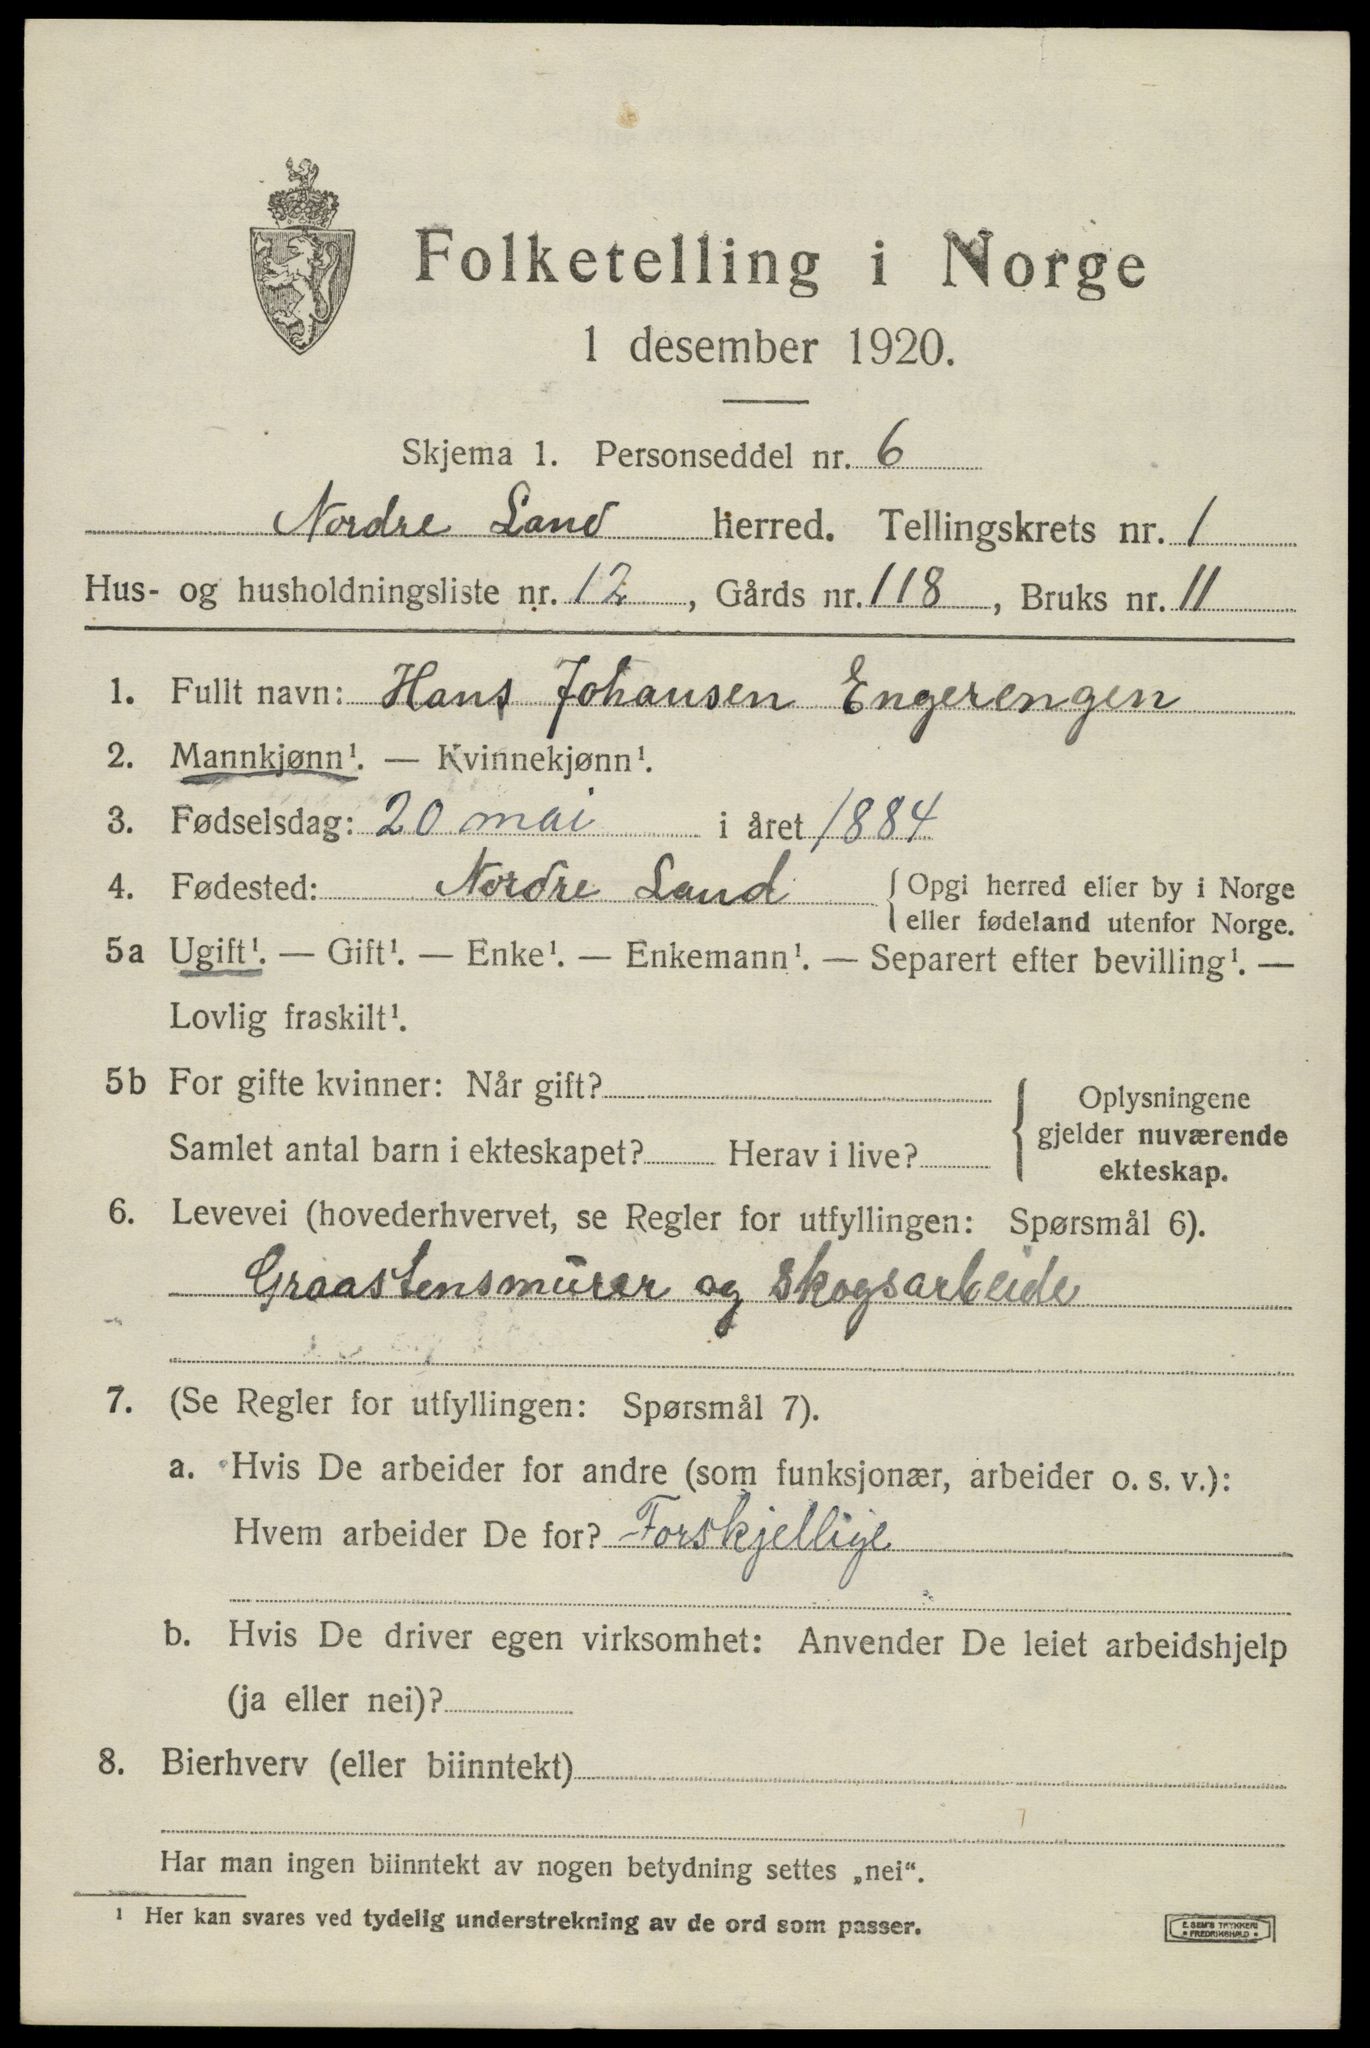 Folketelling i Norge
1 desember 1920.
Skjema 1. Personseddel nr. 6
Nordre Land herred. Tellingskrets nr. 1
Hus- og husholdningsliste nr. 12, Gårds nr. 118, Bruks nr. 11
1. Fullt navn: Hans Johansen Engerengen
2. Mannkjønn¹. — Kvinnekjønn¹.
3. Fødselsdag: 20 mai i året 1884
4. Fødested: Nordre Land { Opgi herred eller by i Norge
eller fødeland utenfor Norge.
5a Ugift¹. — Gift¹. — Enke¹. — Enkemann¹. — Separert efter bevilling¹. —
Lovlig fraskilt¹.
5b For gifte kvinner: Når gift?
Samlet antal barn i ekteskapet? Herav i live?
Oplysningene
gjelder nuværende
ekteskap.
6. Levevei (hovederhvervet, se Regler for utfyllingen: Spørsmål 6).
Graastensmürer og Skogsarbeide
7. (Se Regler for utfyllingen: Spørsmål 7).
a. Hvis De arbeider for andre (som funksjonær, arbeider o. s. v.):
Hvem arbeider De for? Forskjellige
b. Hvis De driver egen virksomhet: Anvender De leiet arbeidshjelp
(ja eller nei)?
8. Bierhverv (eller biinntekt)
Har man ingen biinntekt av nogen betydning settes „nei“.
¹ Her kan svares ved tydelig understrekning av de ord som passer.
E. SEM'S TRYKKERI
FREDRIKSHALD